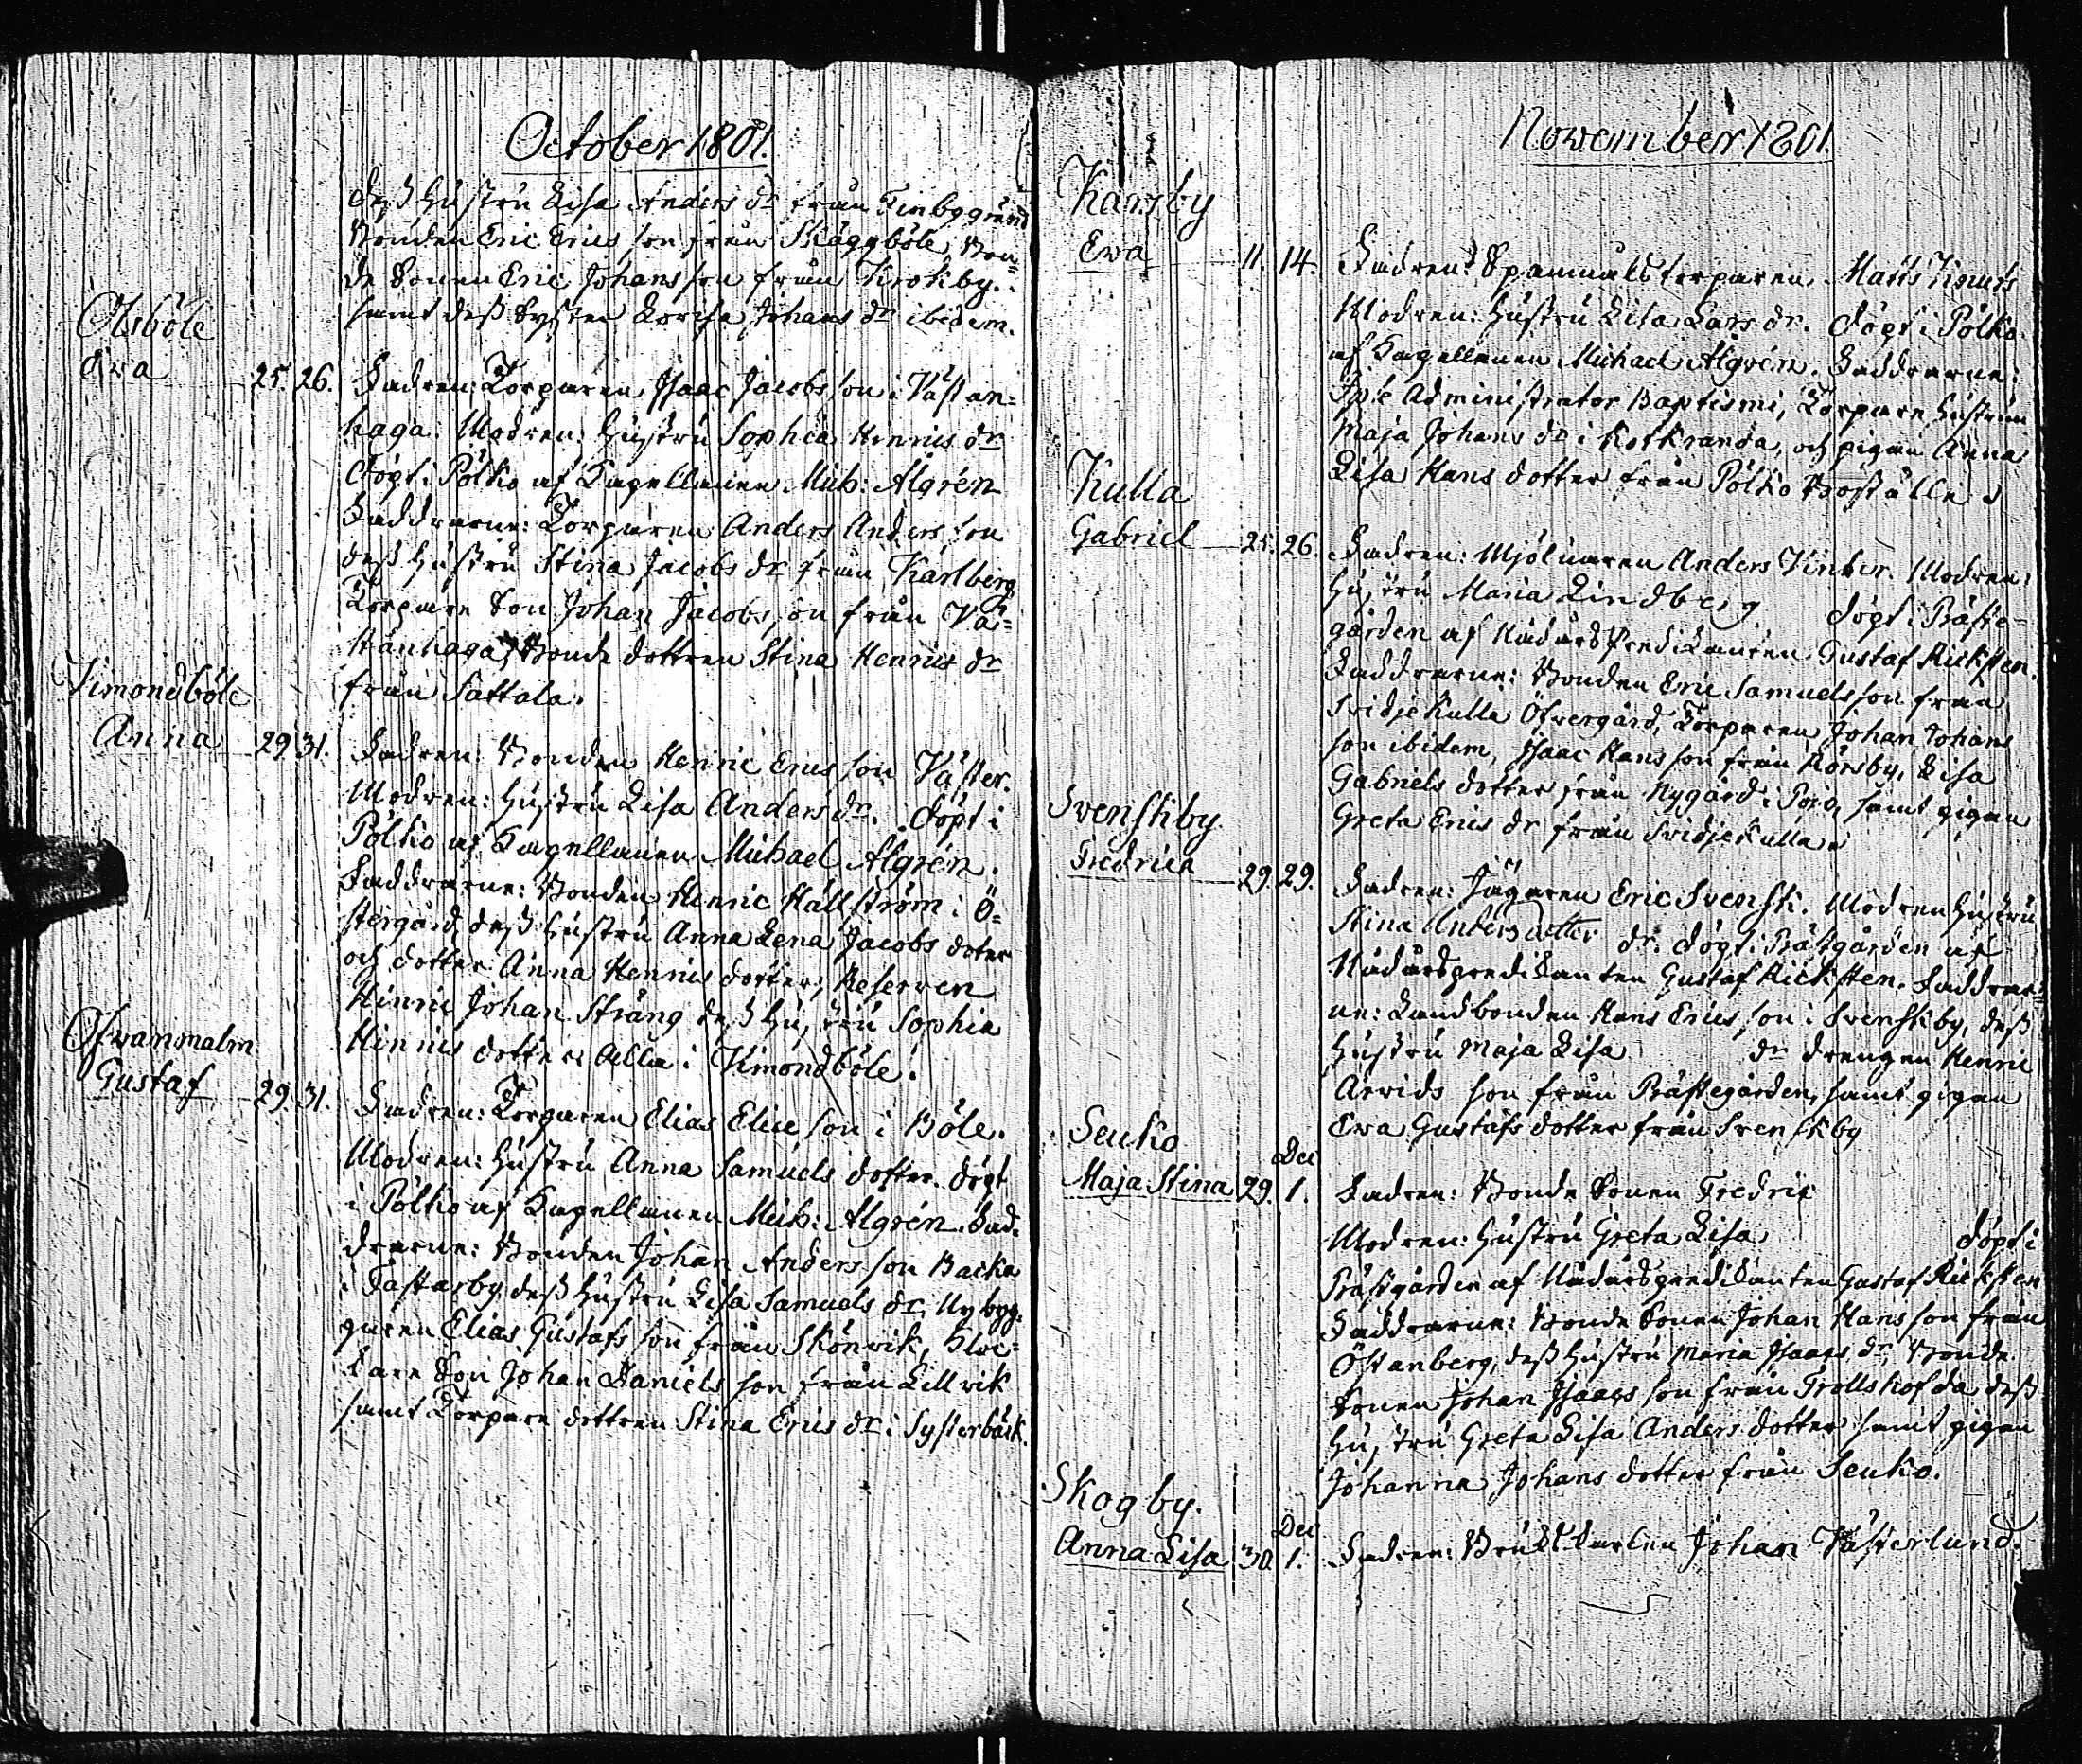 October 1801.
deß Hustru Lisa Anders dr från Finbygränd
Bonden Eric Erics son från Skäggböle, Bon=
de Sonen Eric Johans son från Krokby.
samt deß Syster Lovisa Johans dr ibidem.
Olsböle
Eva 25. 26. Fadren: Torparen Isaac Jacobs son i Västan=
haga. Modren: Hustru Sophia Henrics dr
döpt i Pölko af Capellanen Mich: Algrén
Faddrarne: Torparen Anders Anders son
deß Hustru Stina Jacobs dr från Karlberg
Torpare Son Johan Jacobs son från Vä=
stanhaga, Bonde dottren Stina Henrics dr
från Sattala.
Vimondböle
Anna 29 31. Fadren: Bonden Henric Erics son Väster.
Modren: Hustru Lisa Anders dr. döpt i
Pölko af Capellanen Michael Algrén.
Faddrarne: Bonden Henric Hällström i Ö=
stergård, deß Hustru Anna Lena Jacobs doter
och dotter Anna Henrics dotter, Reserven
Hinric Johan Sträng deß Hustru Sophia
Hinrics dotter alla i Vimondböle.
Ofvanmalm
Gustaf 29. 31. Fadren: Torparen Elias Elias son i Böle.
Modren: Hustru Anna Samuels dotter. döpt
i Pölko af Capellanen Mich: Algrén. Fad=
drarne: Bonden Johan Anders son Backa
i Fastarby, deß Hustru Lisa Samuels dr, Nybyg=
garen Elias Gustafs son från Skönvik,
Son Johan Daniels son från Lillvik
samt Torpare dottren Stina Erics dr i Systerbäck.
November 1801
Karsby
Eva 11. 14. Fadren: Spanmåls torparen Matts Knuts
Modren: Hustru Lisa Lars dr. döpt i Pölko
af Capellanen Michael Algrén. Faddrarne:
Ipse Administrator Baptismi, Torpare Hustrun
Maja Johans dr i Korkranda, och pigan Anna
Lisa Hans dotter från Pölko Boställe
Kulla
Gabriel 25. 26. Fadren: Mjölnaren Anders Vinter. Modren:
Hustru Maria Lindberg döpt i Präste=
gården af Nådårs Predikanten Gustaf Ricksten.
Faddrarne: Bonden Eric Samuels son från
Svidjekulla Öfvergård, Torparen Johan Johans
son ibidem, Isaac Hans son från Korsby, Lisa
Gabriels dotter från Nygård i Pojo, samt pigan
Greta Erics dr från Svidjekulla
Svenskby
Fredrica 29. 29. Fadren: Jägaren Eric Svensk. Modren Hustru
Stina Anders dotter dr. döpt i Prästgården af
Nådårspredikanten Gustaf Ricksten. Faddrar=
ne: Landbonden Hans Erics son i Svenskby, deß
Hustru Maja Lisa dr drengen Henric
Arvids son från Prästegården, samt pigan
Eva Gustafs dotter från Svenskby
Seuko Dec
Maja Stina 29. 1. Fadren: Bonde Sonen Fredric
Modren: Hustru Greta Lisa döpt i
Prästgården af Nådårspredikanten Gustaf Ricksten
Faddrarne: Bonde Sonen Johan Hans son från
Östanberg, deß Hustru Maria Isaacs dr, Bonde
Sonen Johan Isaacs son från Trollshofda deß
Hustru Greta Lisa Anders dotter samt pigan
Johanna Johans dotter från Seuko.
Skogby. Dec
Anna Lisa 30. 1. Fadren: Bruks Karlen Johan Västerlund.